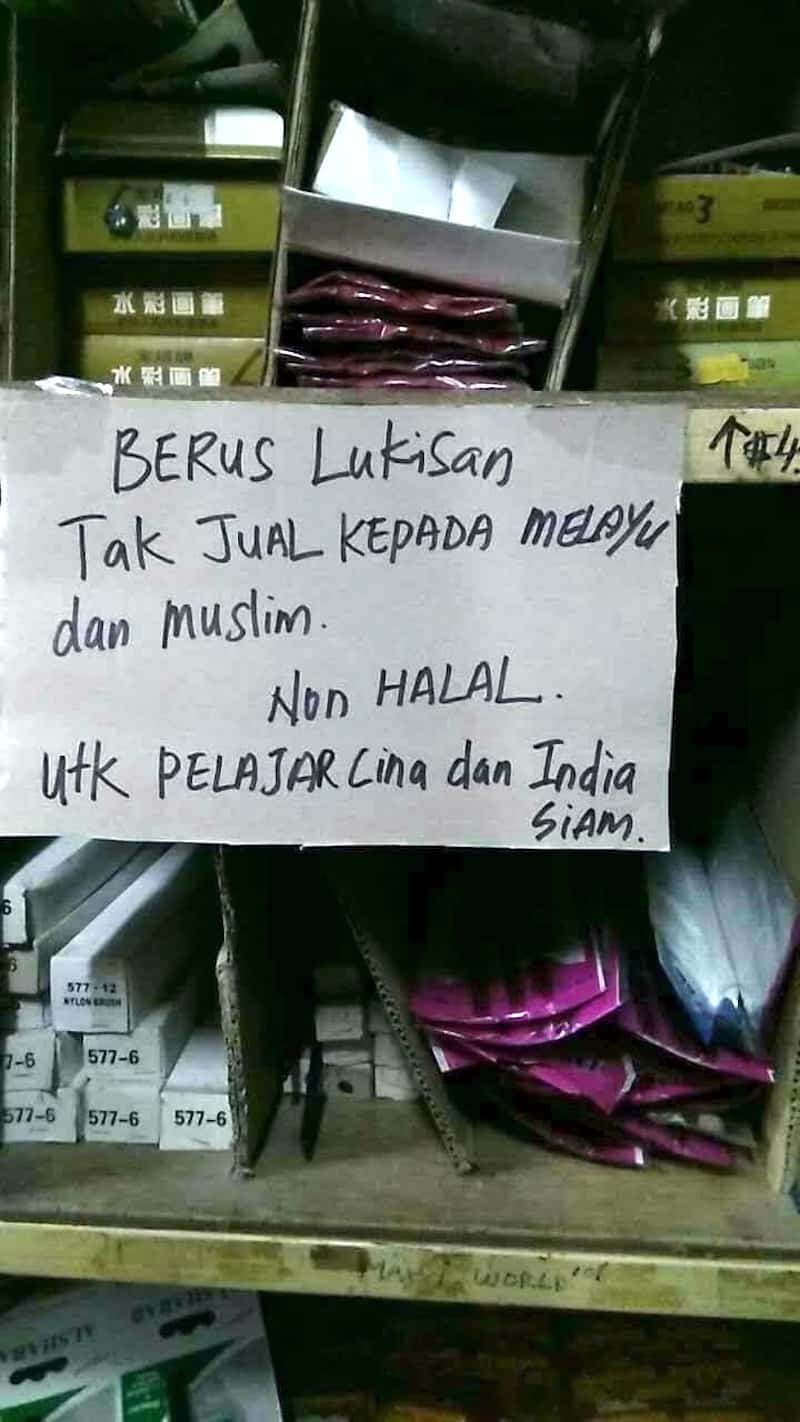 彩画筆
水彩画筆
水彩画筆
3
水彩画筆
↑$4.
BERUS LukiSan
Tak JUAL KEPADA MELAYu
dan muslim.
Non HALAL.
utk PELAJAR Cina dan India
SiAM.
6
6
577-12
NYLON BRUSH
7-6
577-6
577-6
577-6
577-6
WORLD